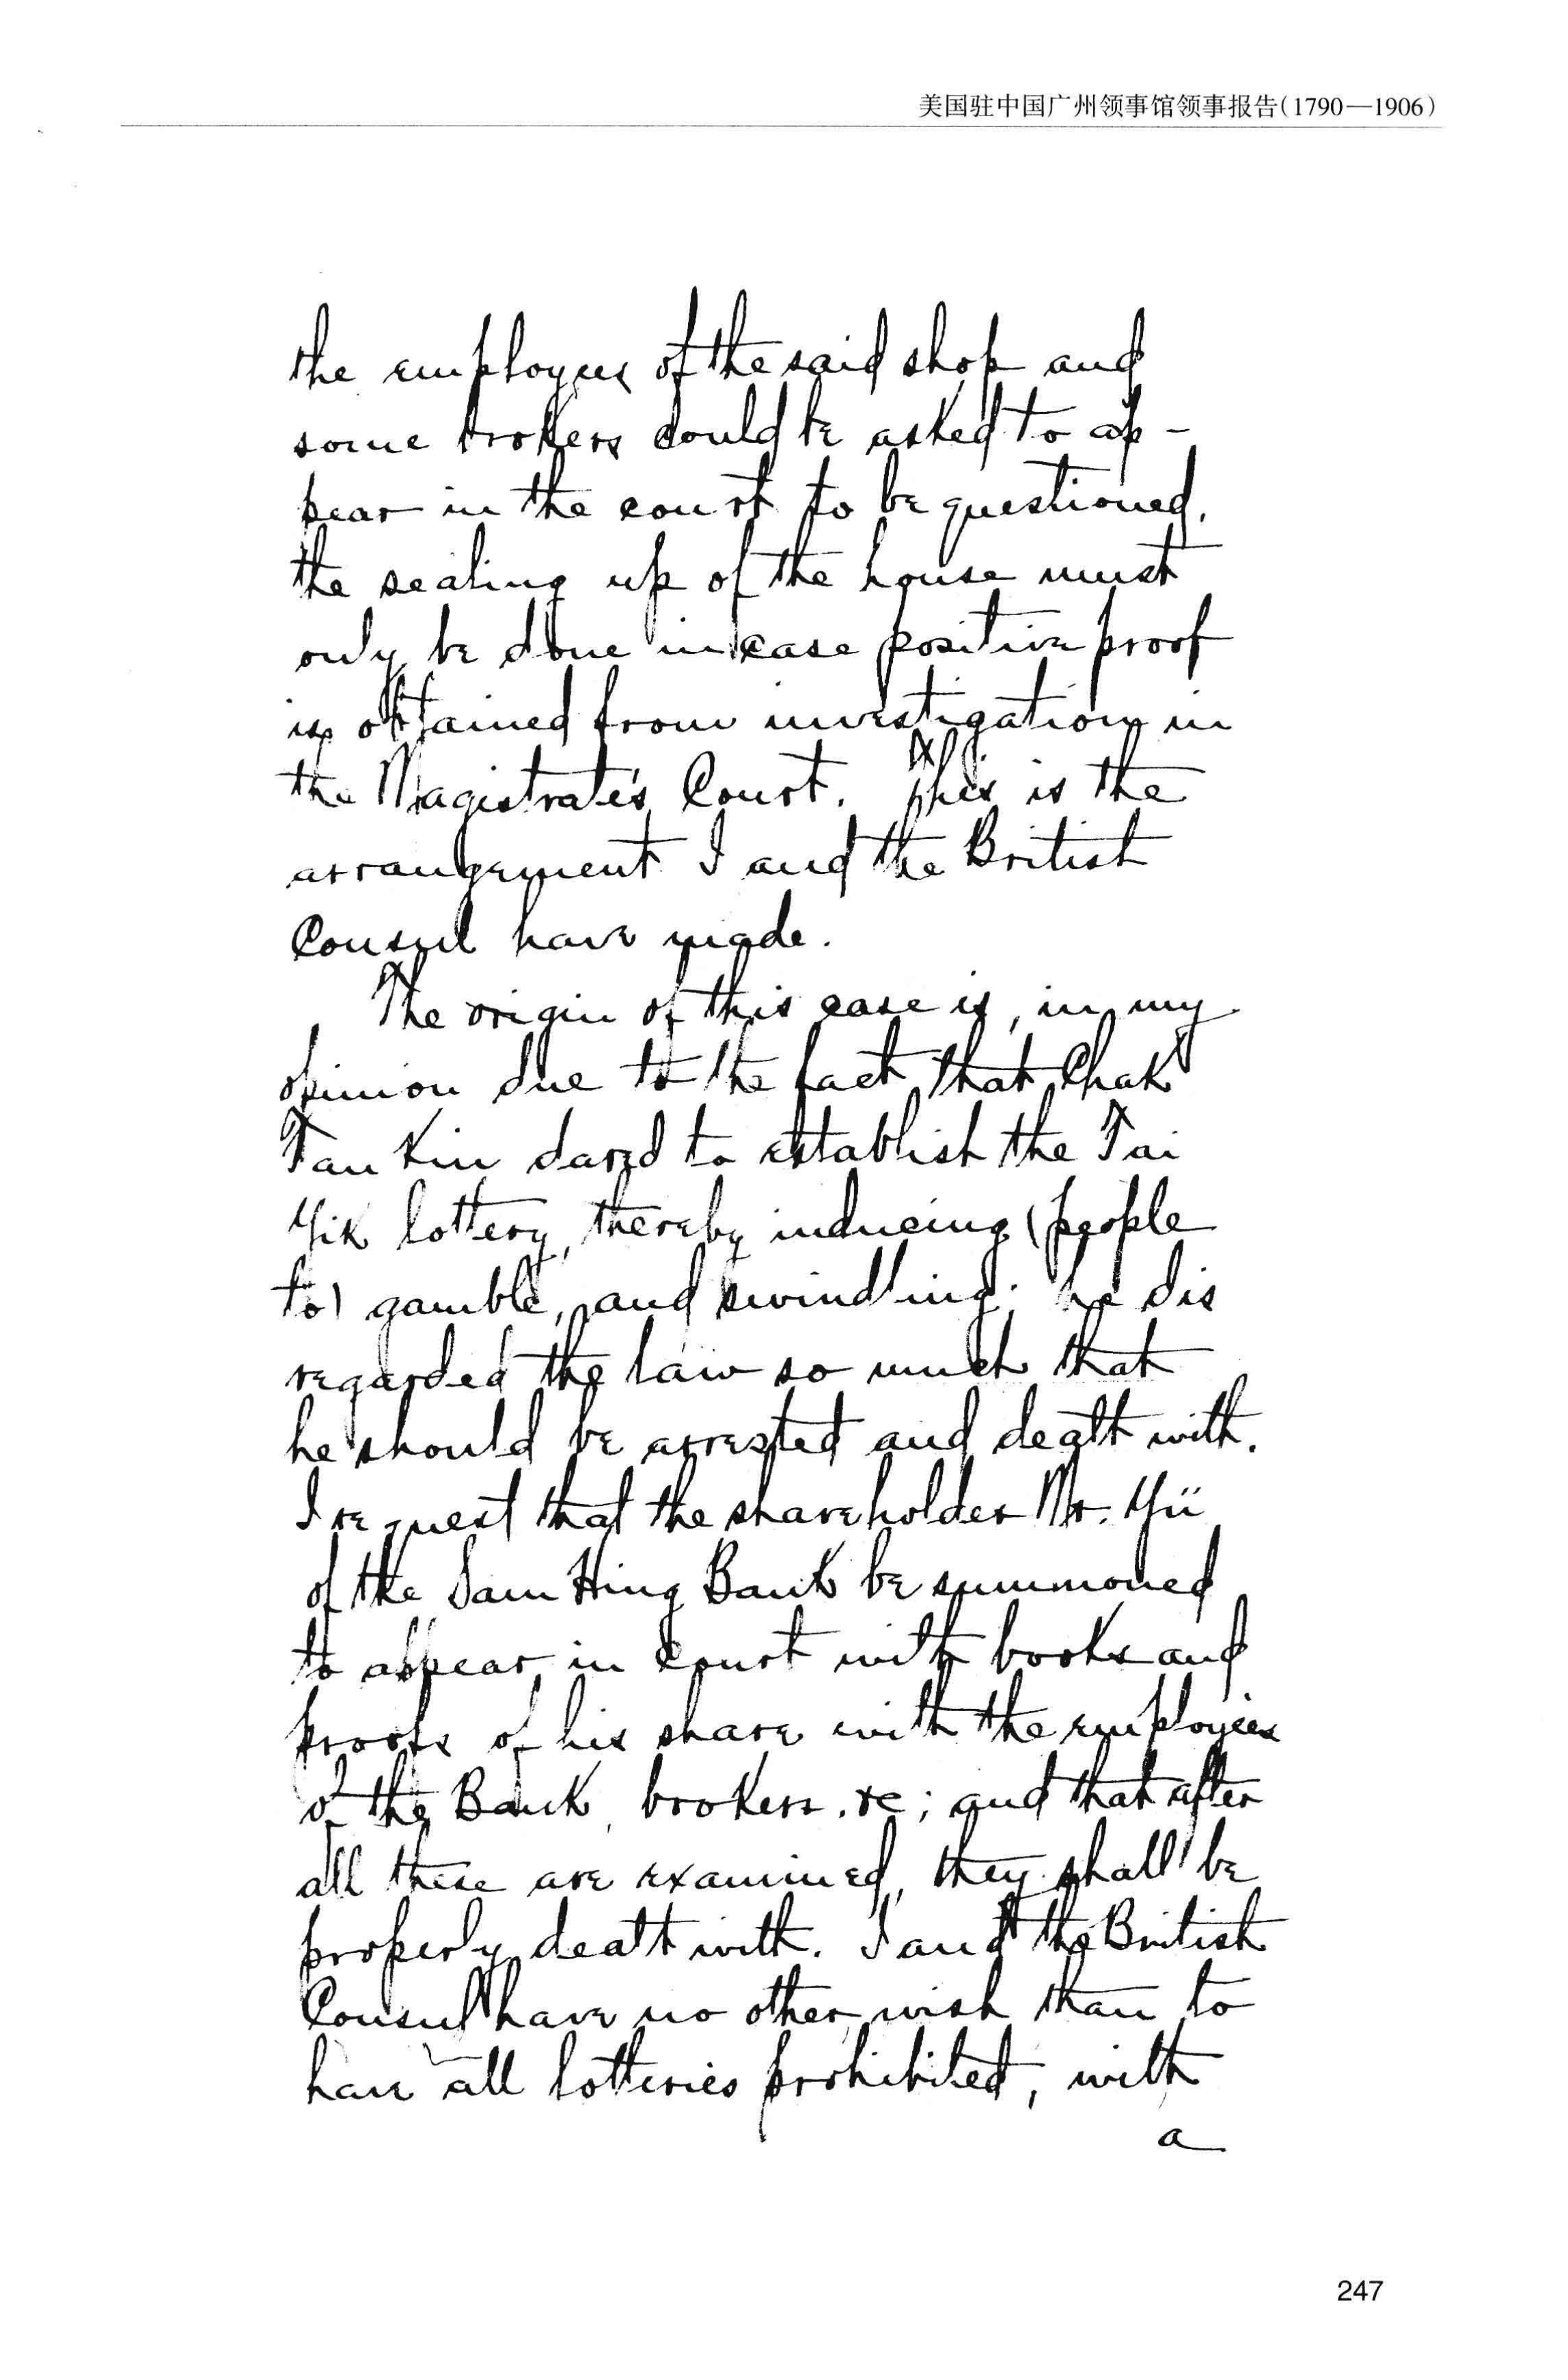 美国驻中国广州领事馆领事报告(1790—1906)
the employees of the said shop and
some brokers could be asked to ap-
pear in the court to be questioned.
the sealing up of the house must
only be done in case positive proof
is obtained from investigation in
the Magistrate's Court. This is the
arrangement I and the British
Consul have made.
The origin of this case is, in my
opinion due to the fact that Chak
Tau Kin dared to establish the Tai
Yik lottery, thereby inducing (people
to) gamble, and swindling; he dis
regarded the law so much that
he should be arrested and dealt with.
I request that the shareholder Mr. Yü
of the Sam Hing Bank be summoned
to appear in court with books and
proofs of his share with the employees
of the Bank, brokers. &c; and that after
all these are examined, they shall be
properly dealt with. I and the British
Consul have no other wish than to
have all lotteries prohibited, with
a
247